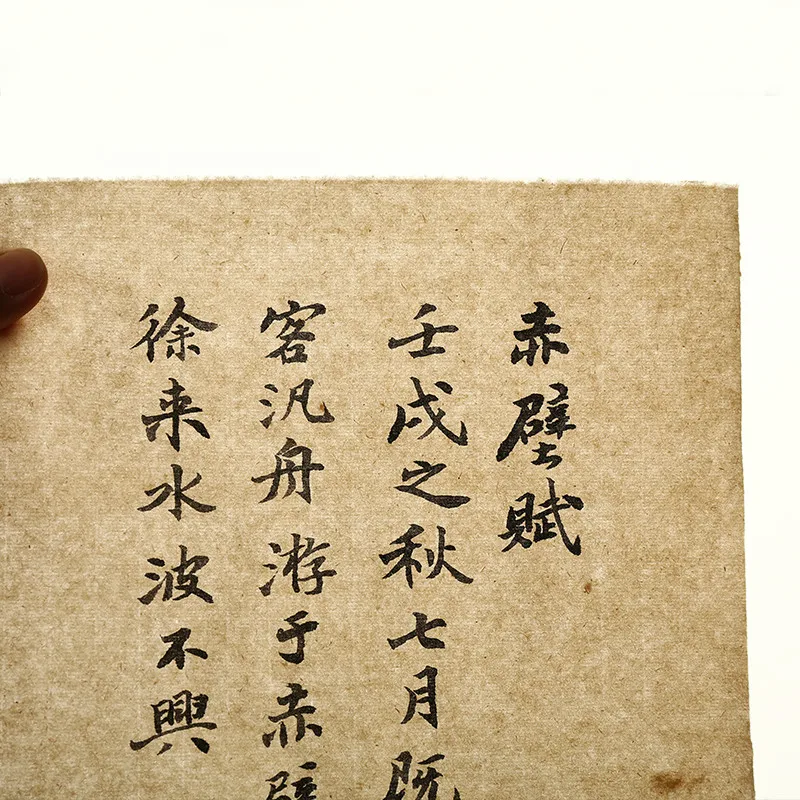 赤壁賦
壬戌之秋七月既
客汎舟游于赤壁
徐来水波不興